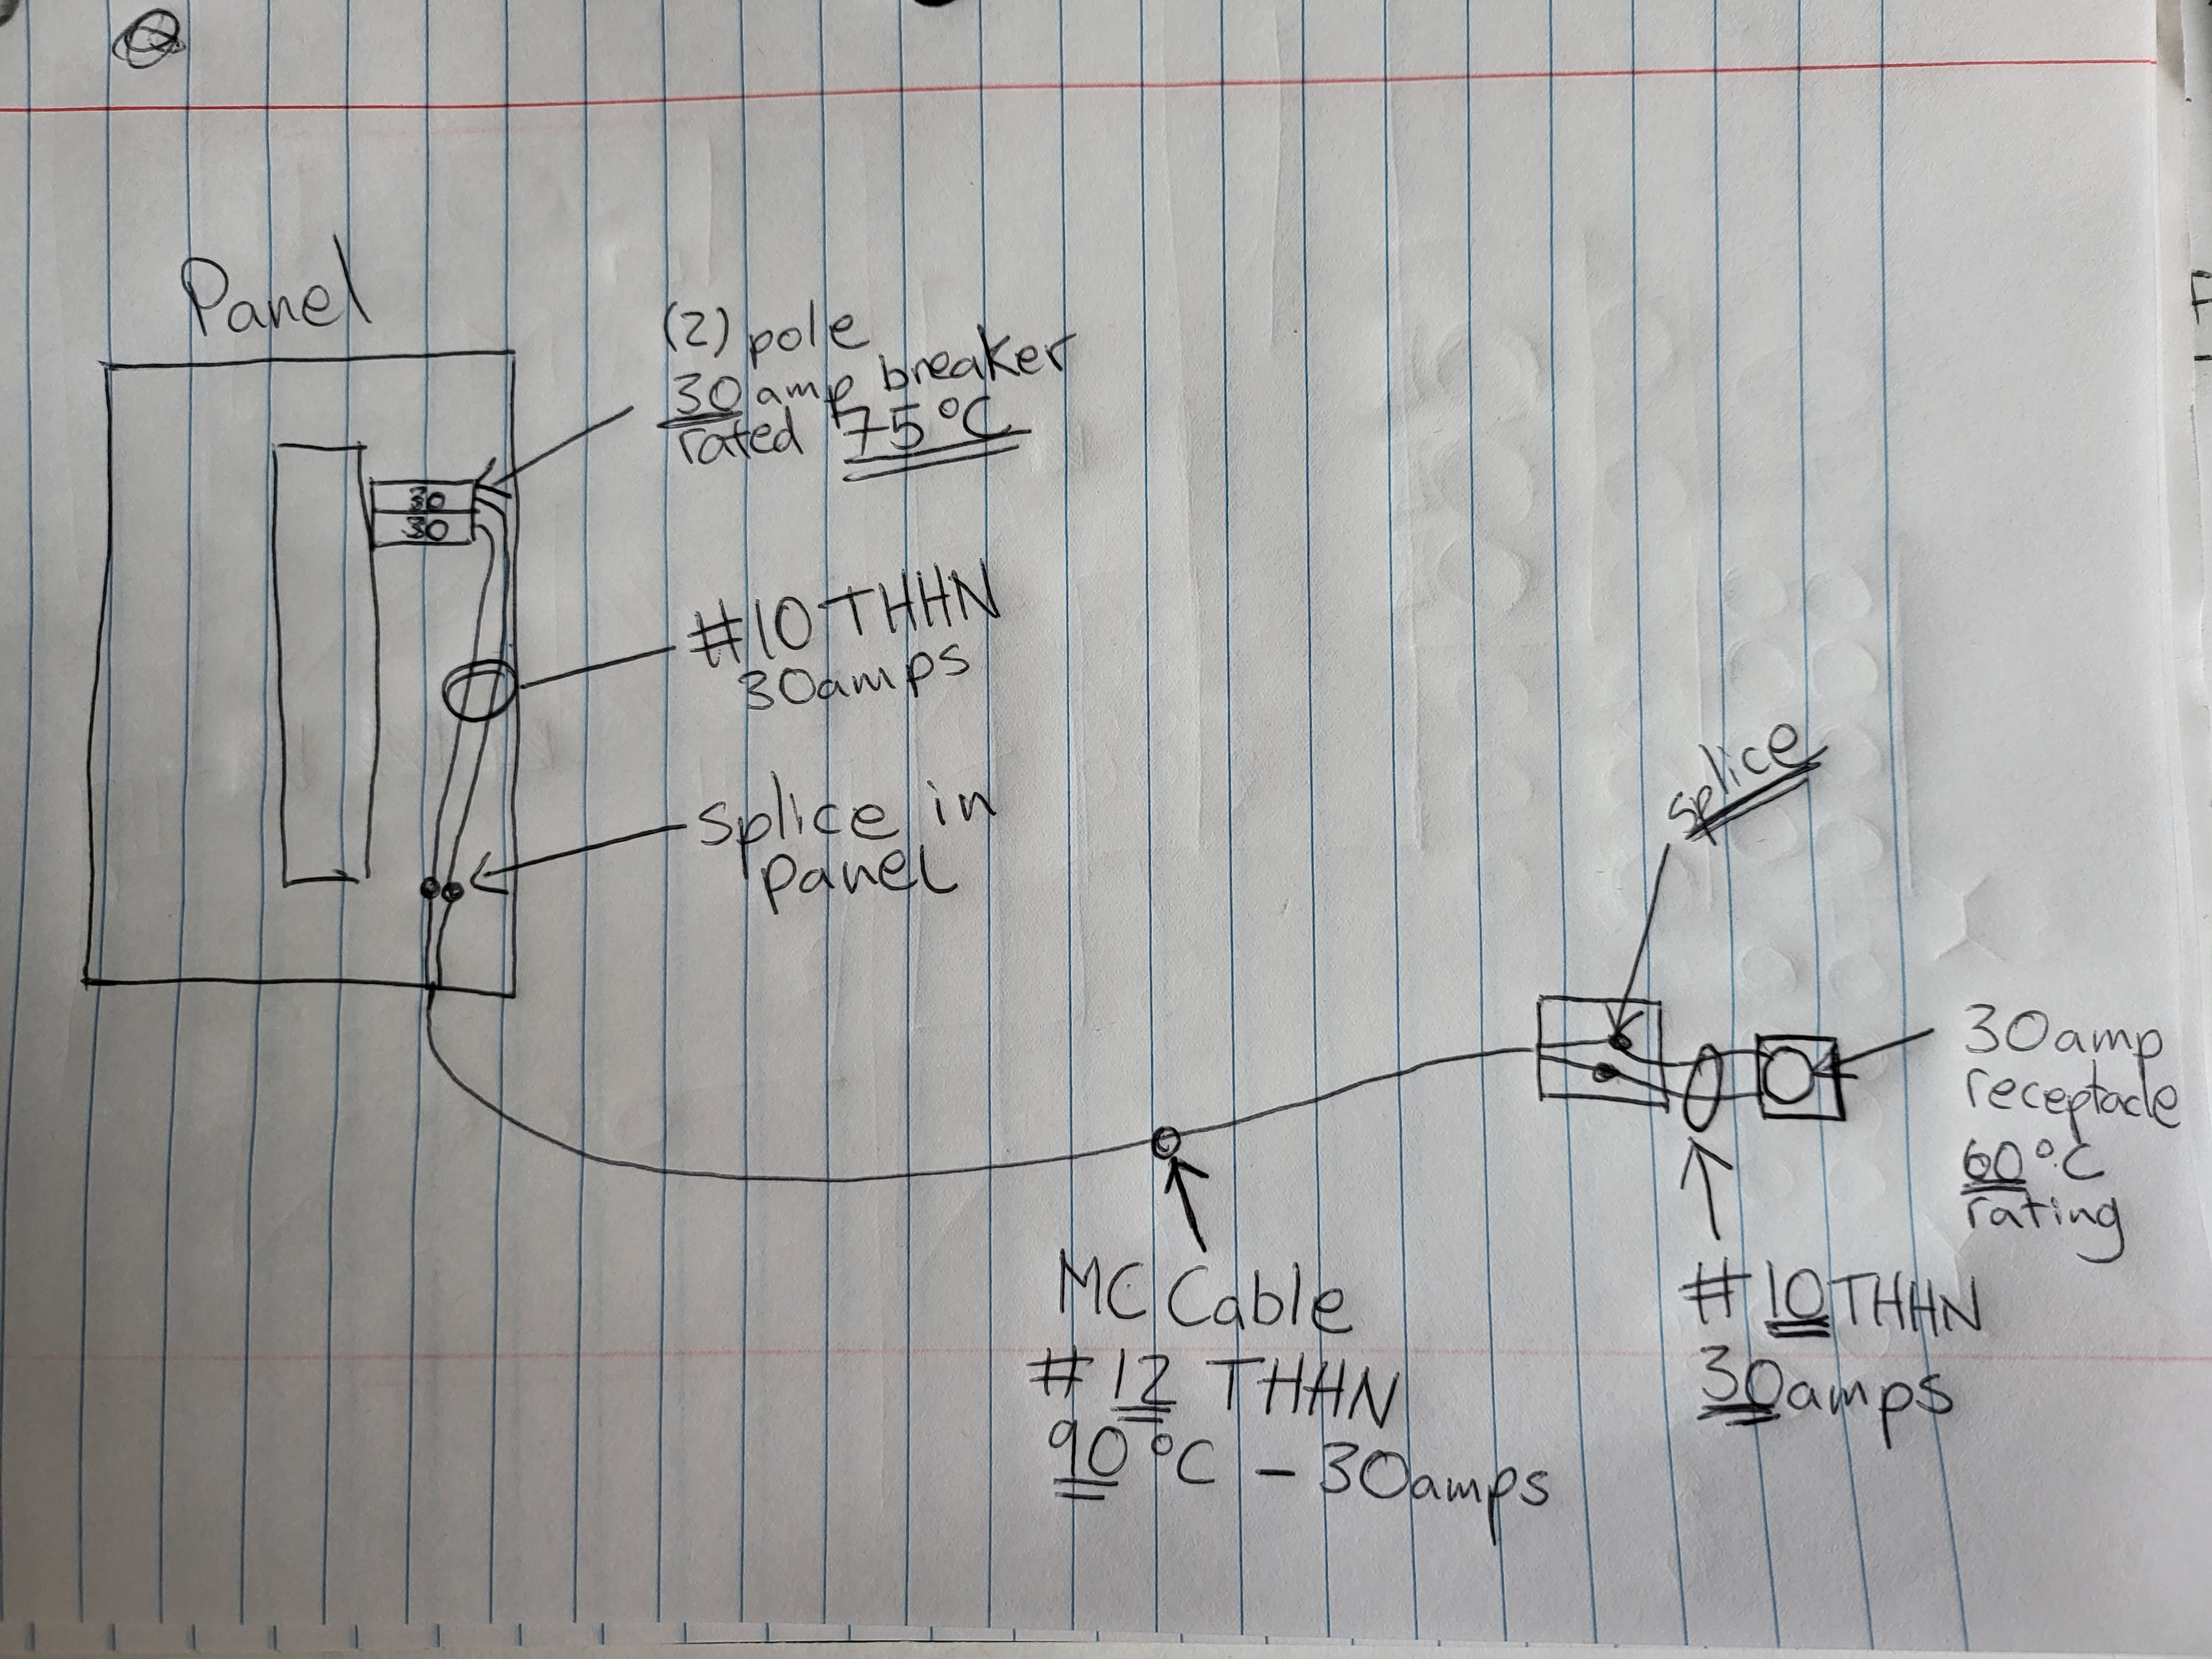 Panel
(2) pole
30 amp breaker
rated 75°C
30
30
#10 THHN
30amps
Splice in
panel
splice
30amp
receptacle
60°C
rating
MC Cable
#12 THHN
90°C - 30amps
#10 THHN
30amps